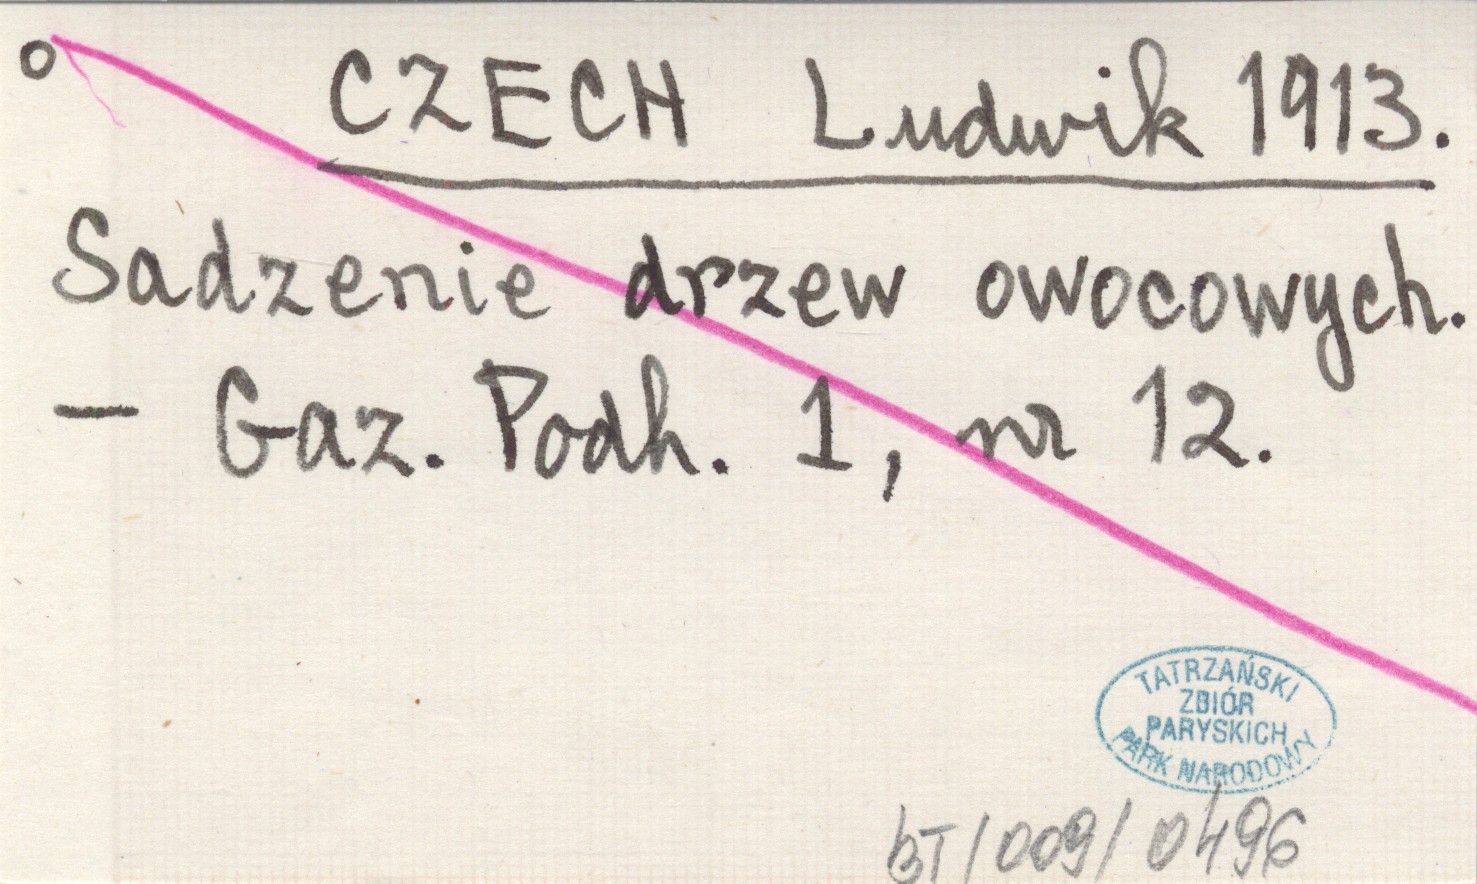 o CZECH Ludwik 1913.
Sadzenie drzew owocowych.
— Gaz. Podh. 1, nr 12.
TATRZAŃSKI
ZBIÓR
PARYSKICH
PARK NARODOWY
BT/009/0496